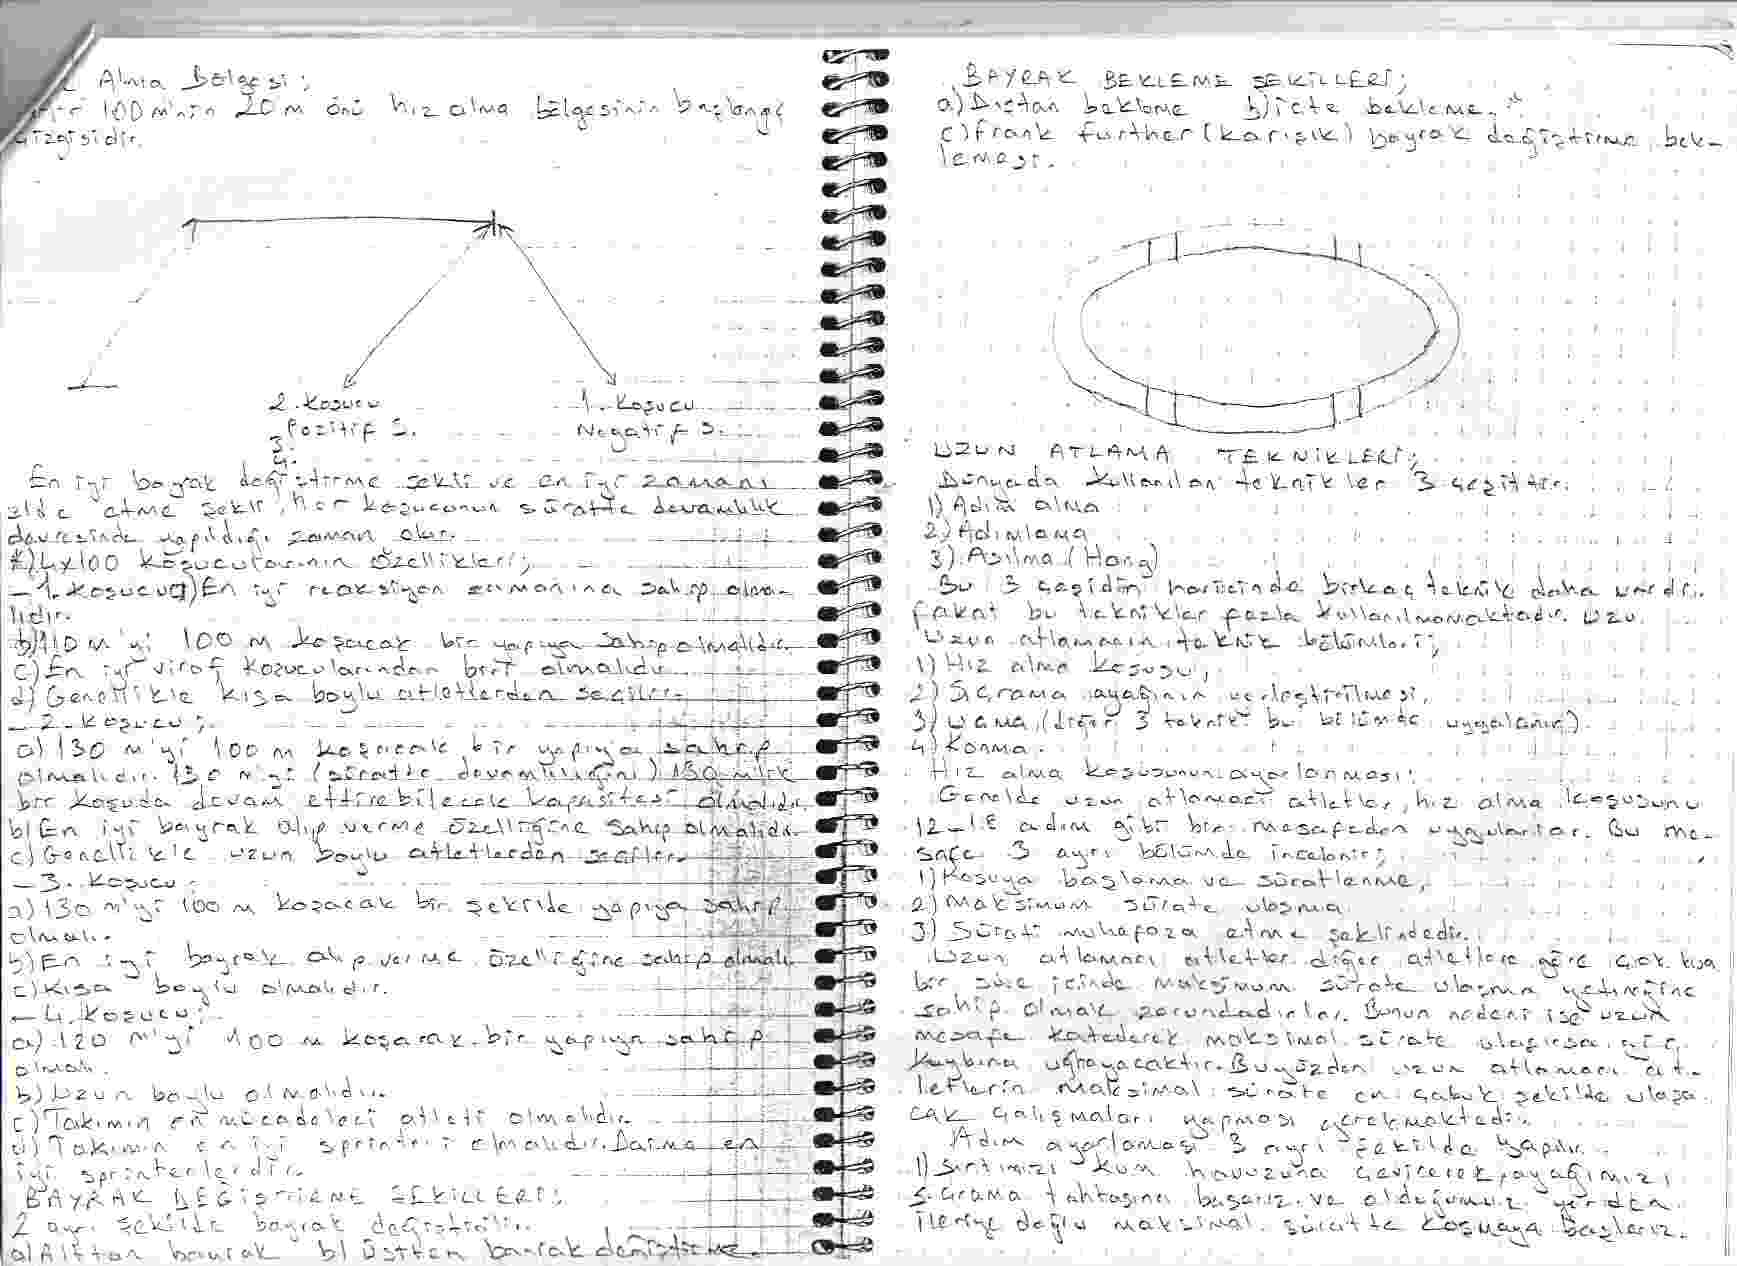 Alma Bölgesi;
100 m'nin 20 m önü hız alma bölgesinin başlangıç
çizgisidir.
2. Koşucu
Pozitif S.
3.
4.
1. Koşucu
Negatif S.
En iyi bayrak değiştirme şekli ve en iyi zamanı
elde etme şekli, her koşucunun süratte devamlılık
devresinde yapıldığı zaman olur.
*) 4x100 koşucularının özellikleri;
- 1. Koşucu a) En iyi reaksiyon zamanına sahip olma-
lıdır.
b) 110 m'yi 100 m koşacak bir yapıya sahip olmalıdır.
c) En iyi viraj koşucularından biri olmalıdır.
d) Genellikle kısa boylu atletlerden seçilir.
- 2. Koşucu;
a) 130 m'yi 100 m koşacak bir yapıya sahip
olmalıdır. 130 m'yi (süratte devamlılığını) 130 m'lik
bir koşuda devam ettirebilecek kapasitesi olmalıdır.
b) En iyi bayrak alıp verme özelliğine sahip olmalıdır.
c) Genellikle uzun boylu atletlerden seçilir.
- 3. Koşucu;
a) 130 m'yi 100 m koşacak bir şekilde yapıya sahip
olmalı.
b) En iyi bayrak alıp verme özelliğine sahip olmalı.
c) Kısa boylu olmalıdır.
- 4. Koşucu;
a) 120 m'yi 100 m koşarak bir yapıya sahip
olmalı.
b) Uzun boylu olmalıdır.
c) Takımın en mücadeleci atleti olmalıdır.
d) Takımın en iyi sprinteri olmalıdır. Daima en
iyi sprinterlerdir.
BAYRAK DEĞİŞTİRME ŞEKİLLERİ;
2 ayrı şekilde bayrak değiştirilir.
a) Alttan bayrak b) Üstten bayrak değiştirme.
BAYRAK BEKLEME ŞEKİLLERİ;
a) Dıştan bekleme b) içte bekleme.
c) Frank further (karışık) bayrak değiştirme bek-
lemesi.
UZUN ATLAMA TEKNİKLERİ;
Dünyada kullanılan teknikler 3 çeşittir.
1) Adım alma
2) Adımlama
3) Asılma (Hang)
Bu 3 çeşidin haricinde birkaç teknik daha vardır.
fakat bu teknikler fazla kullanılmamaktadır. Uzu.
Uzun atlamanın teknik bölümleri;
1) Hız alma koşusu,
2) Sıçrama ayağının yerleştirilmesi,
3) Uçma, (diğer 3 teknik bu bölümde uygulanır)
4) Konma.
Hız alma koşusunun ayarlanması:
Genelde uzun atlamacı atletler, hız alma koşusunu
12-18 adım gibi bir mesafeden uygularlar. Bu me-
safe 3 ayrı bölümde incelenir;
1) Koşuya başlama ve süratlenme,
2) Maksimum sürate ulaşma
3) Sürati muhafaza etme şeklindedir.
Uzun atlamacı atletler diğer atletlere göre çok kısa
bir süre içinde maksimum sürate ulaşma yeteneğine
sahip olmak zorundadırlar. Bunun nedeni ise uzun
mesafe katederek maksimal sürate ulaşırsa güç
kaybına uğrayacaktır. Bu yüzden uzun atlamacı at-
letlerin maksimal sürate en çabuk şekilde ulaşa-
cak çalışmaları yapması gerekmektedir.
Adım ayarlaması 3 ayrı şekilde yapılır.
1) Sırtımızı kum havuzuna çevirerek, ayağımızı
sıçrama tahtasına basarız ve olduğumuz yerden
ileriye doğru maksimal süratte koşmaya başlarız.